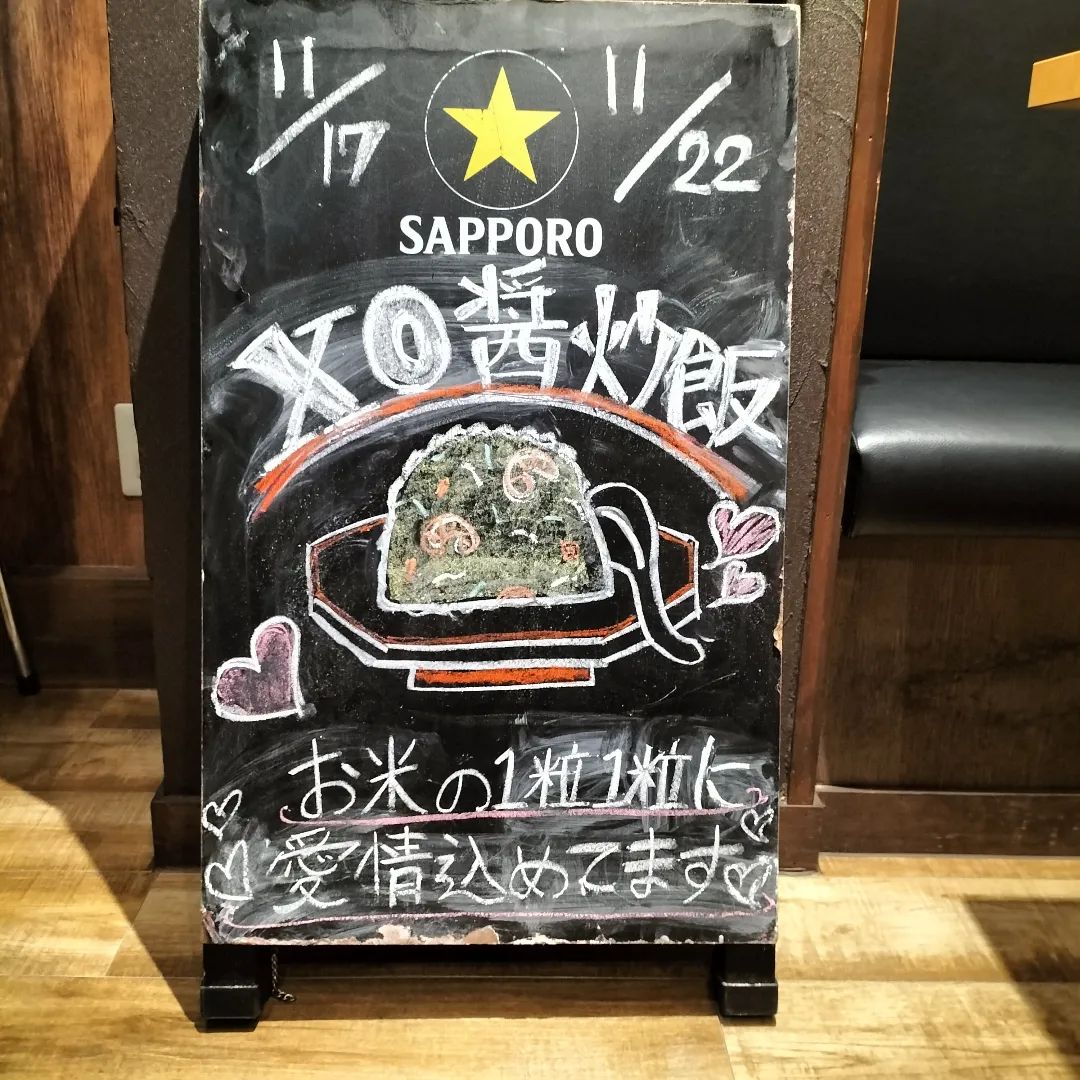 11/17 11/22
SAPPORO
XO醤炒飯
お米の1粒1粒に
愛情込めてます